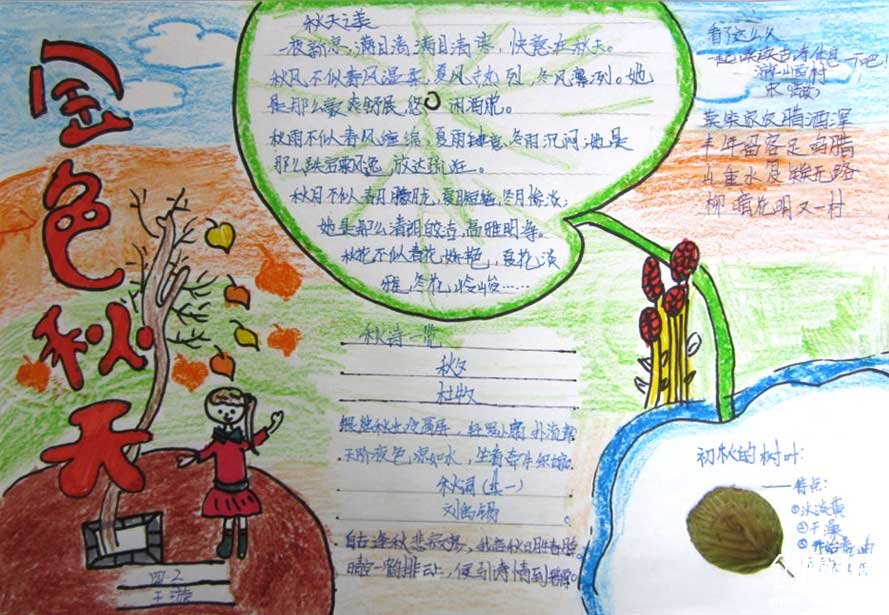 金色秋天
秋天之美
一夜新凉,满目清,满目清寒,快意在秋天。
秋风不似春风温柔,夏风热烈,冬风凛冽。她
是那么豪爽舒展,悠 闲洒脱。
秋雨不似春雨缠绵,夏雨 冬雨沉闷,她是
那么 飘逸,放达
秋月不似春月朦胧,夏月短 冬月惨淡;
她是那么清朗皎洁,高雅明
秋花不似春花娇艳,夏花淡
雅,冬花冷峻……
看了这么久
一起来读古诗休息一下吧!
游山西村
宋
莫笑农家腊酒浑
丰年留客足鸡腊
山重水复疑无路
柳暗花明又一村
秋诗一览
秋夕
杜牧
银烛秋光冷画屏,轻罗小扇扑流萤
天阶夜色凉如水,坐看牵牛织
秋词(其一)
刘禹锡
自古逢秋悲寂寥,我言秋日胜春
晴空一鹤排云上,便引诗情到碧霄。
初秋的树叶:
——特点:
①
②干
③开始
四2
王